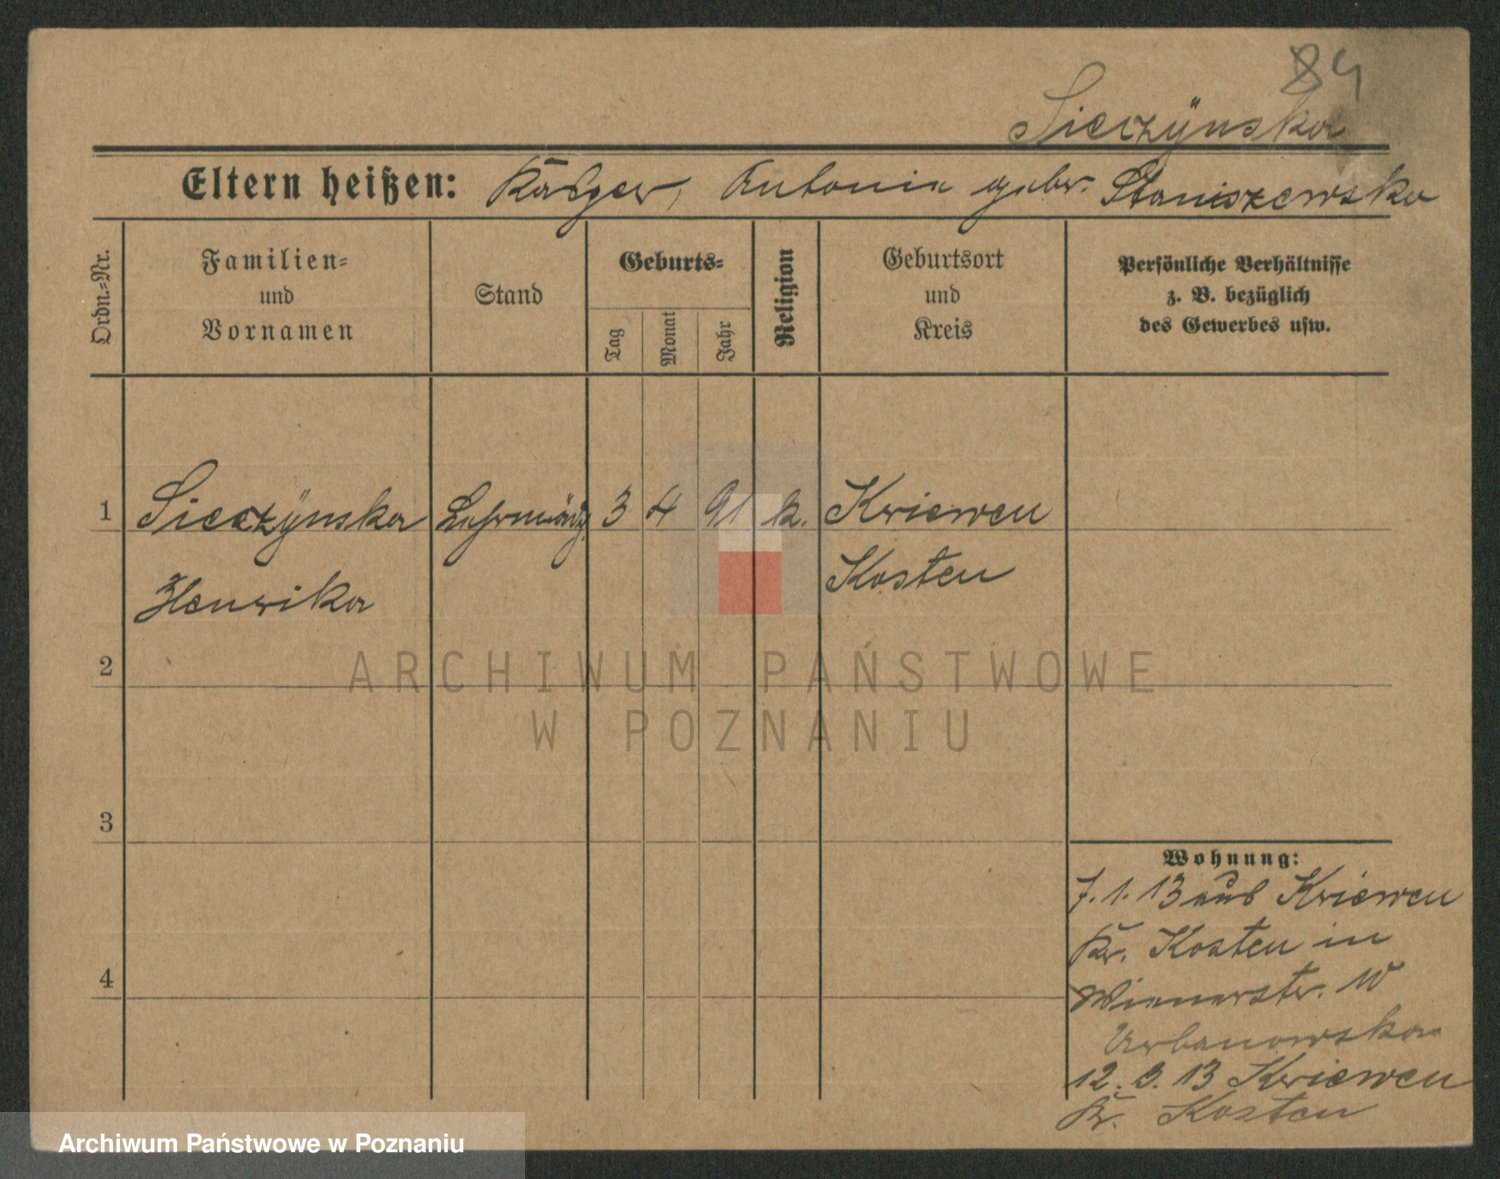 84
Sieczÿnska
Eltern heißen: Kasper, Antonia gebr. Staniszewska
Ordn.-Nr.
Familien-
und
Vornamen
Stand
Geburts-
Tag
Monat
Jahr
Religion
Geburtsort
und
Kreis
Persönliche Verhältnisse
z. B. bezüglich
des Gewerbes usw.
1 Sieczÿnska 3 4 91 k. Kriewen
Henrika Kosten
2
3
4
Wohnung:
7.1.13 aus Kriewen
Kr. Kosten in
Wienerstr. 10
Urbanowska
12.3.13 Kriewen
Kr. Kosten
ARCHIWUM PAŃSTWOWE
W POZNANIU
Archiwum Państwowe w Poznaniu